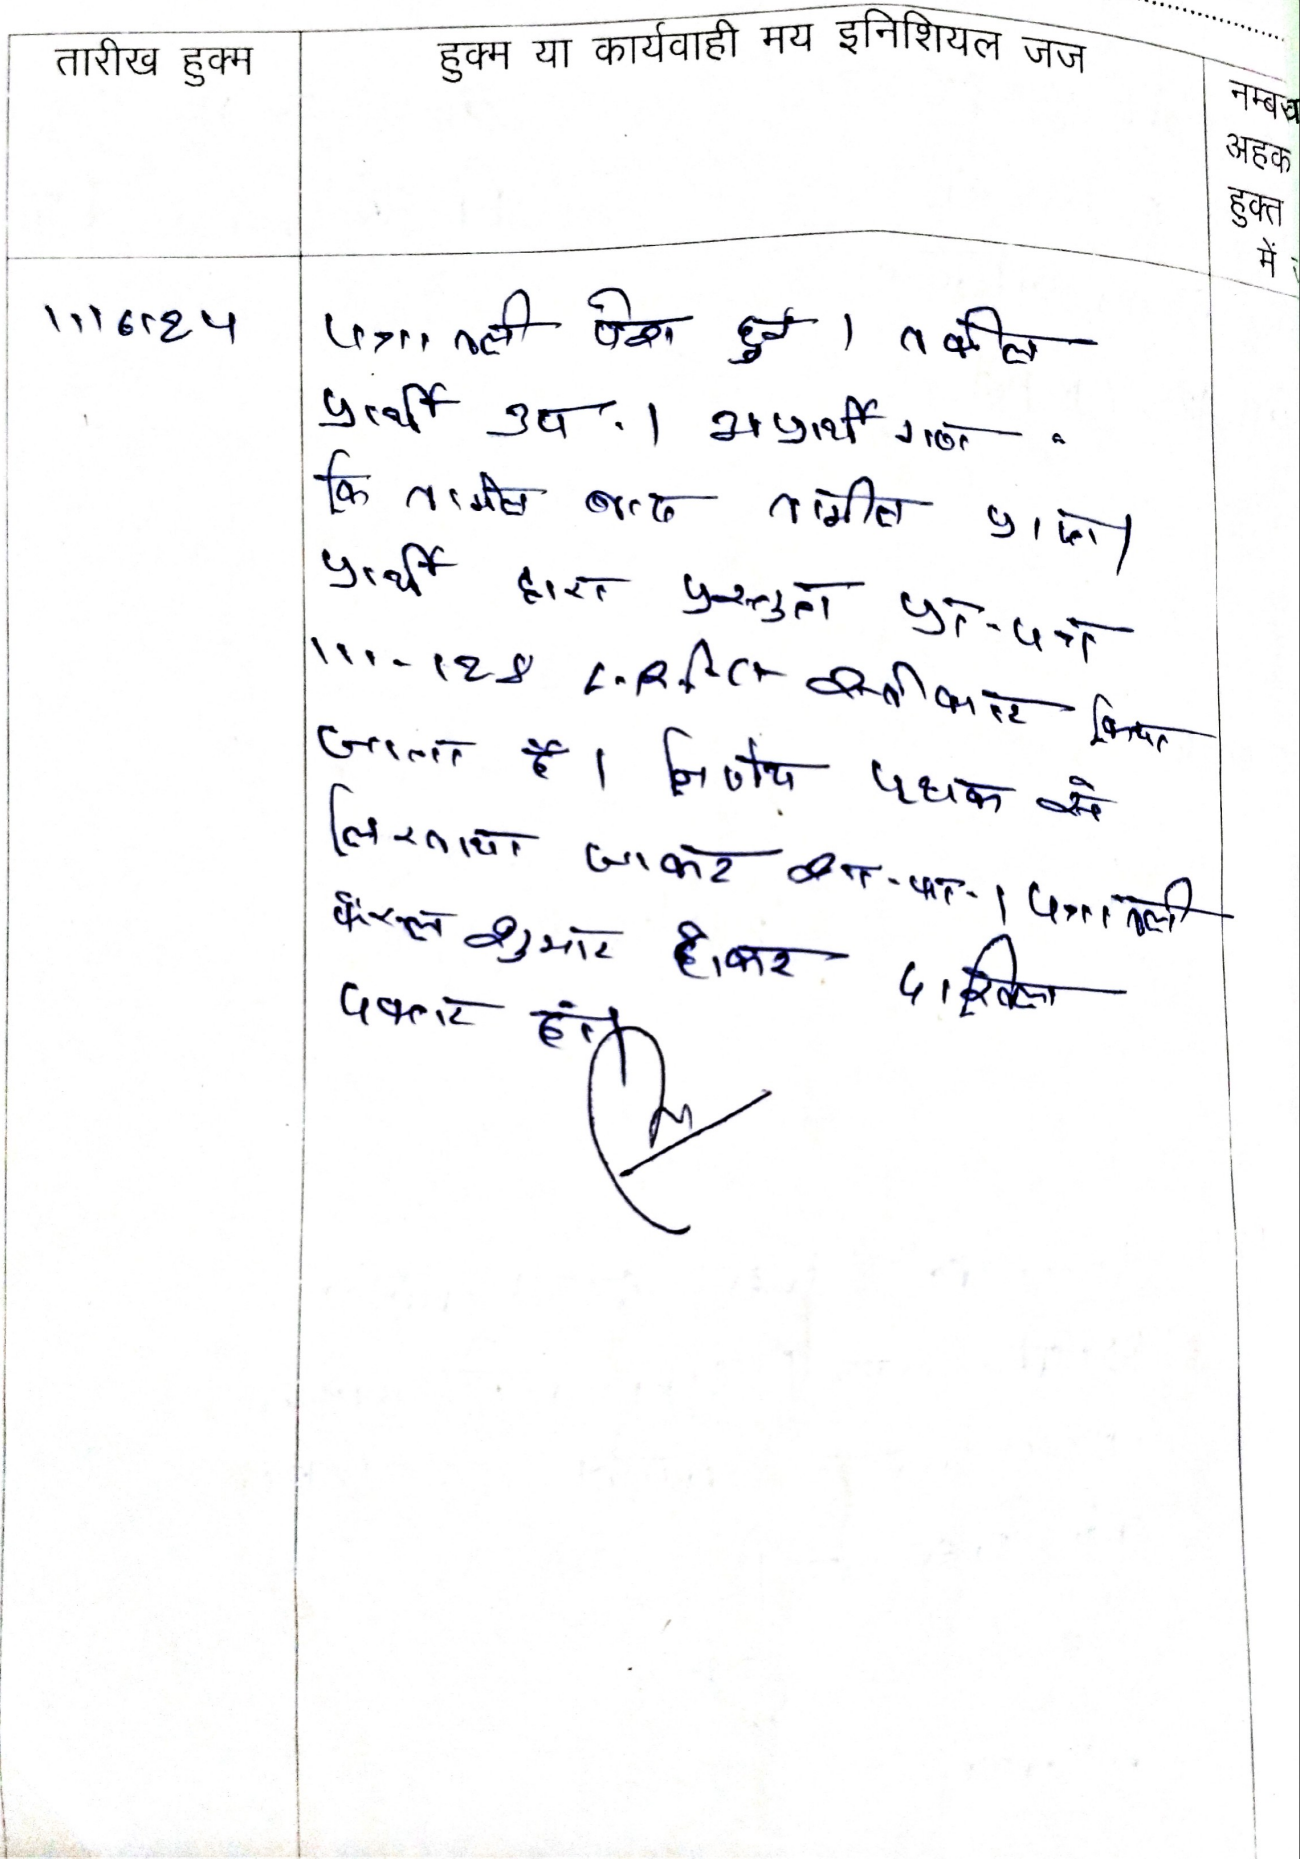 तारीख हुक्म
हुक्म या कार्यवाही मय इनिशियल जज
नम्बर
अहक
हुक्त
में
पत्रावली पेश हुई। वकील
प्रार्थी उप.। अप्रार्थी गण
कि तामील बाद तामील प्राप्त।
प्रार्थी द्वारा प्रस्तुत प्रा-पत्र
111-128 L.R. एक्ट स्वीकार किया
जाता है। निर्णय पृथक से
लिखाया जाकर सुना-या-। पत्रावली
फैसल शुमार होकर दाखिल
दफ्तर हो।